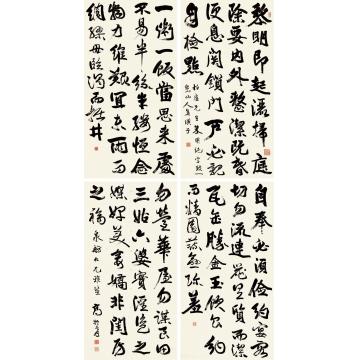 黎明即起灑掃庭
除要內外整潔既昏
便息關鎖門戶必
自檢點
一粥一飯當思來處
不易半絲半縷恆念
物力維艱宜未雨而
綢繆毋臨渴而掘井
自奉必須儉約宴客
切勿流連器具質而潔
瓦缶勝金玉飲食約
而精園蔬愈珍羞
勿營華屋勿謀良田
三姑六婆實淫盜之
媒婢美妾嬌非閨房
之福